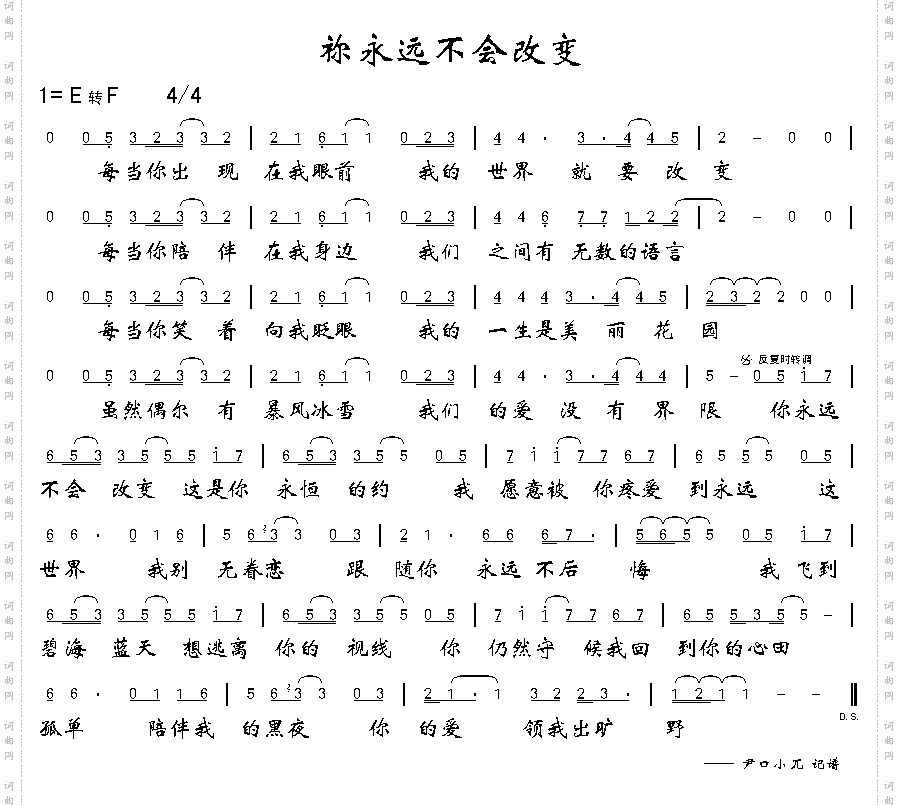 祢永远不会改变
1= E 转 F 4/4
0 0 5 3 2 3 3 2 | 2 1 6 1 1 0 2 3 | 4 4 · 3 · 4 4 5 | 2 – 0 0 |
每当你出 现 在我眼前 我的 世界 就 要 改 变
0 0 5 3 2 3 3 2 | 2 1 6 1 1 0 2 3 | 4 4 6 7 7 1 2 2 | 2 – 0 0 |
每当你陪 伴 在我身边 我们 之间有 无数的语言
0 0 5 3 2 3 3 2 | 2 1 6 1 1 0 2 3 | 4 4 4 3 · 4 4 5 | 2 3 2 2 0 0 |
每当你笑 着 向我眨眼 我的 一生是美 丽 花 园
反复时转调
0 0 5 3 2 3 3 2 | 2 1 6 1 1 0 2 3 | 4 4 · 3 · 4 4 4 | 5 – 0 5 i 7 |
虽然偶尔 有 暴风冰雪 我们 的爱 没 有 界 限 你永远
6 5 3 3 5 5 5 i 7 | 6 5 3 3 5 5 0 5 | 7 i i 7 7 6 7 | 6 5 5 5 0 5 |
不会 改变 这是你 永恒 的约 我 愿意被 你疼爱 到永远 这
6 6 · 0 1 6 | 5 6 3 3 0 3 | 2 1 · 6 6 6 7 · | 5 6 5 5 0 5 i 7 |
世界 我别 无眷恋 跟 随你 永远 不后 悔 我 飞到
6 5 3 3 5 5 5 i 7 | 6 5 3 3 5 5 0 5 | 7 i i 7 7 6 7 | 6 5 5 3 5 5 – |
碧海 蓝天 想逃离 你的 视线 你 仍然守 候我回 到你的心田
6 6 · 0 1 1 6 | 5 6 3 3 0 3 | 2 1 · 1 3 2 2 3 · | 1 2 1 1 – – ‖
D.S.
孤单 陪伴我 的黑夜 你 的爱 领我出旷 野
—— 尹口小兀 记谱
词曲网